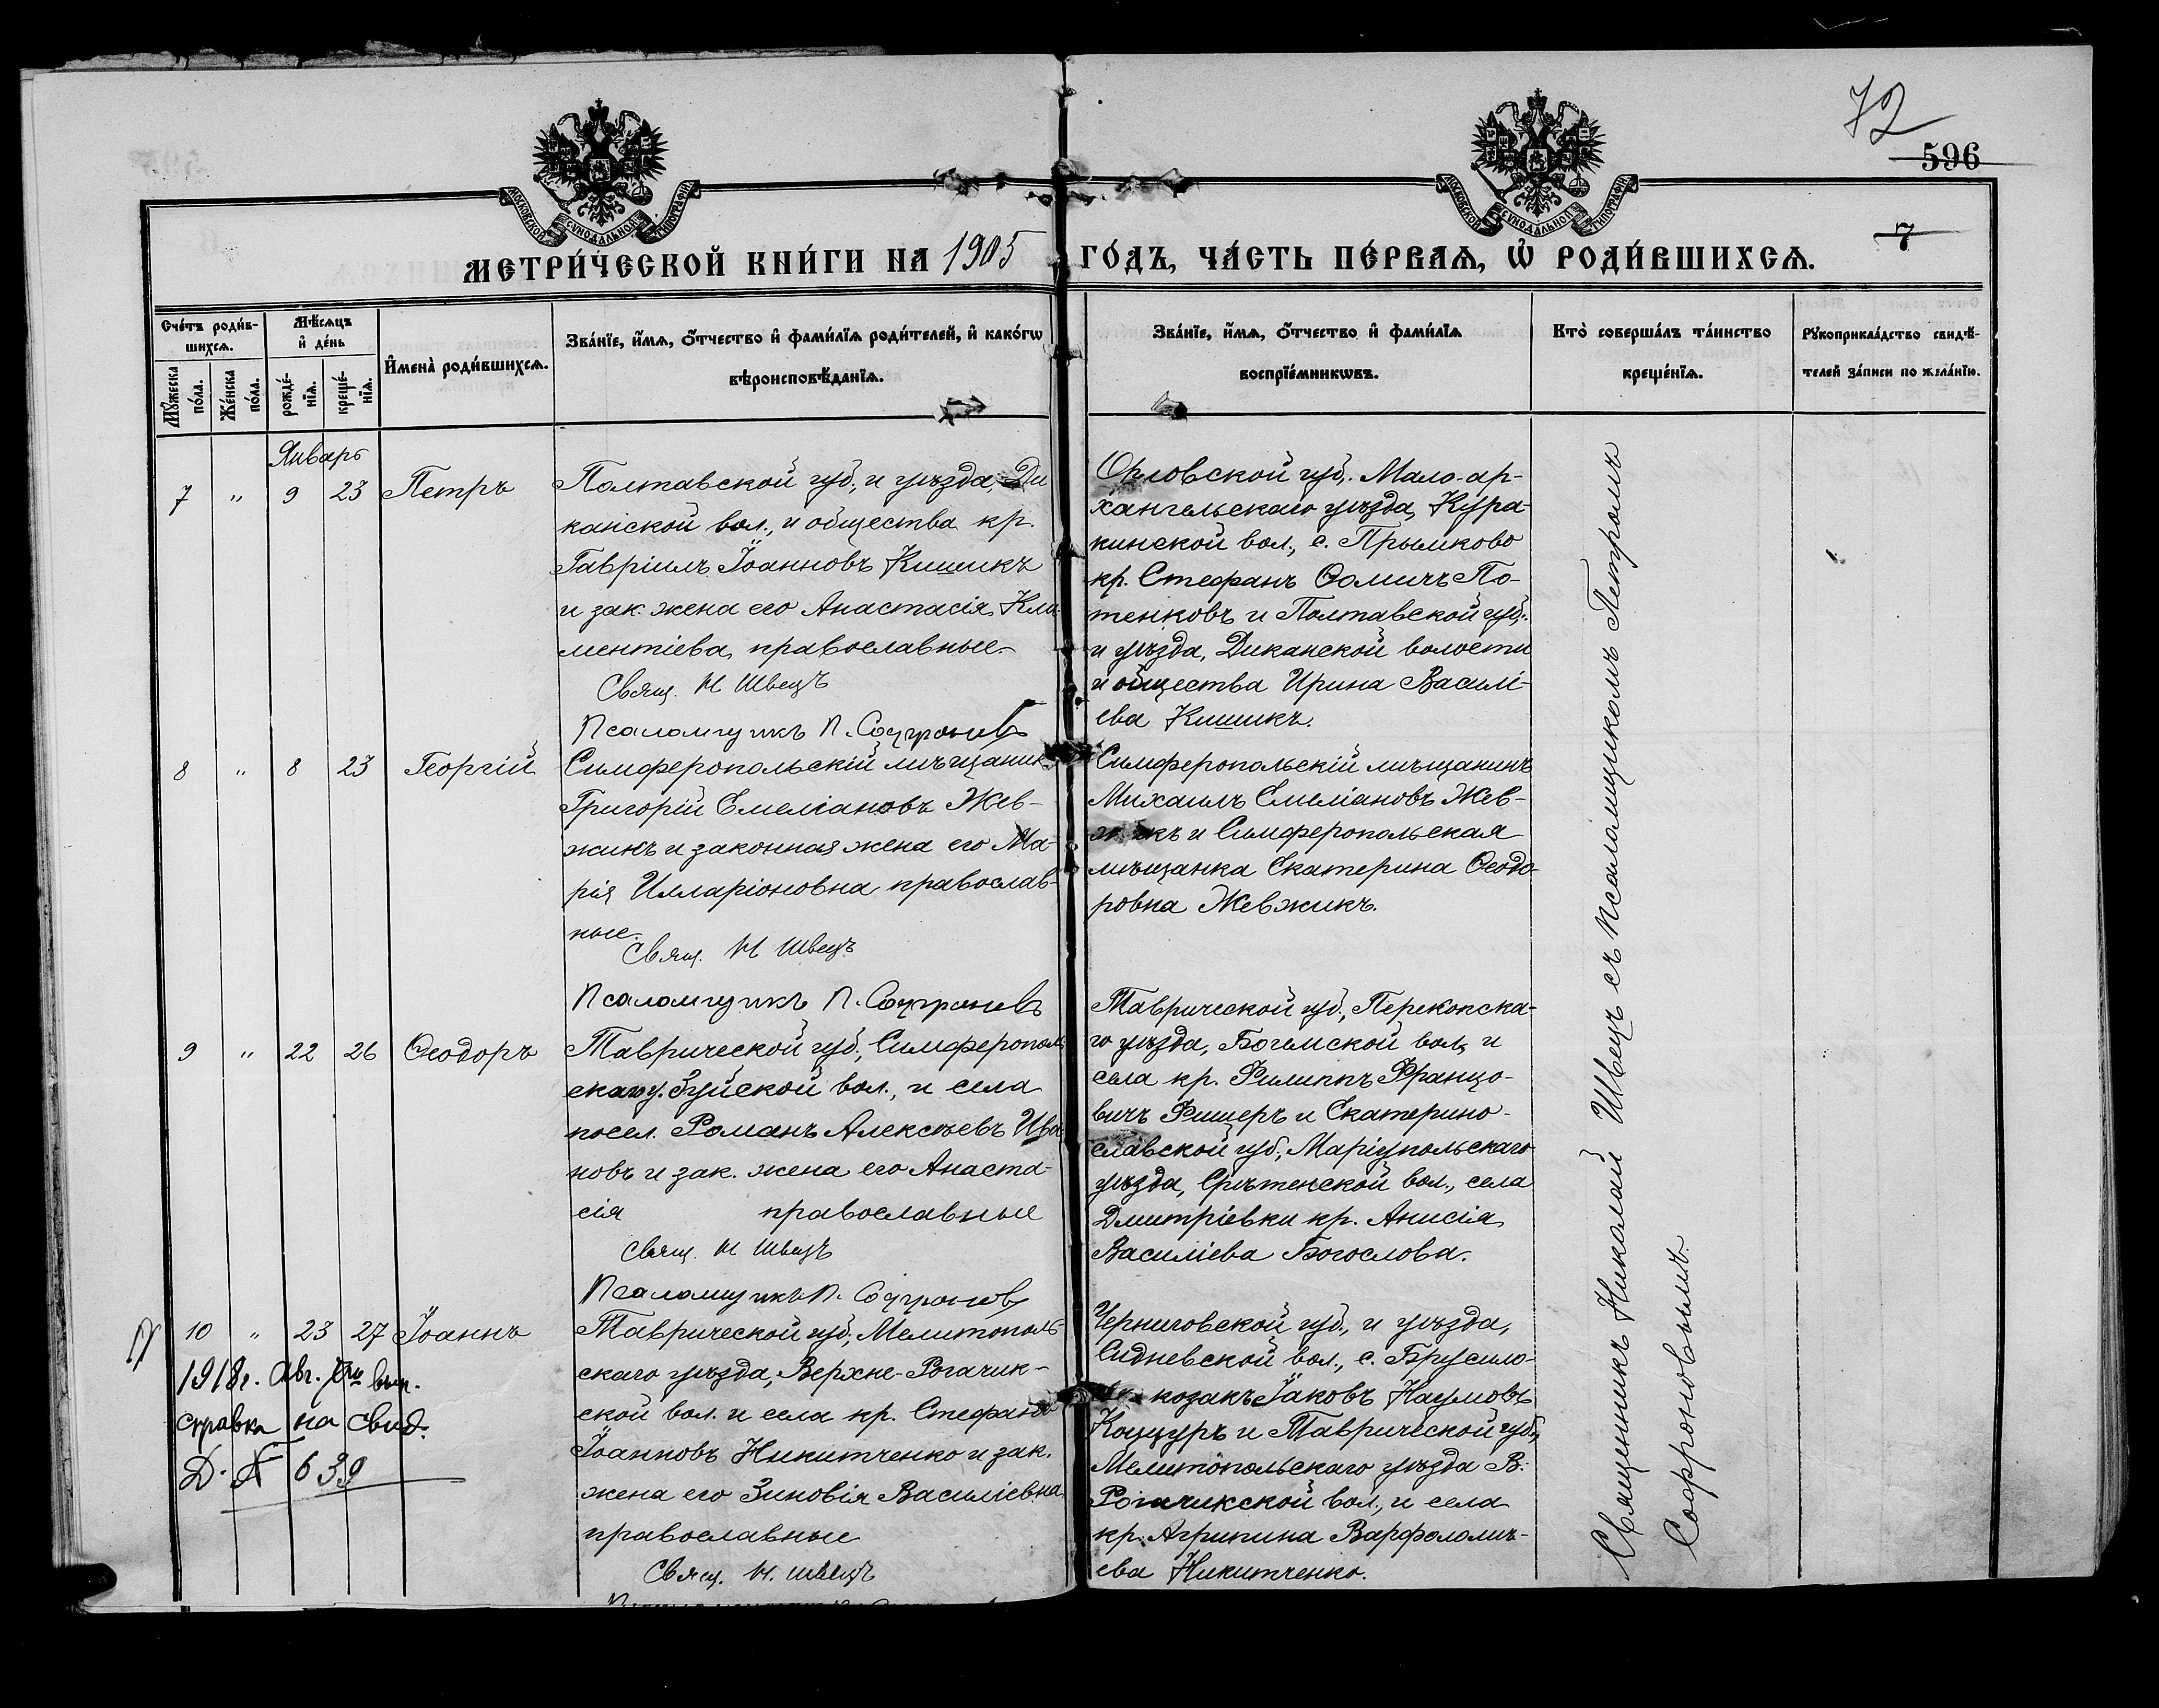 72
596
7
МОСКОВСКОЙ СУНОДАЛЬНОЙ ТИПОГРАФІИ
МОСКОВСКОЙ СУНОДАЛЬНОЙ ТИПОГРАФІИ
МЕТРИ́ЧЕСКОЙ КНИ́ГИ НА 1905 ГО́ДЪ, ЧА́СТЬ ПЕ́РВАѦ, Ѡ҆ РОДИ́ВШИХСѦ.
Сче́тъ роди́в-
шихсѧ.
Мꙋ́жеска по́ла.
Же́нска по́ла.
Мѣ́сѧцъ
и҆ де́нь
рожде́-
нїѧ.
креще́-
нїѧ.
И҆мена̀ роди́вшихсѧ.
Зва́нїе, и҆́мѧ, ѻ҆́тчество и҆ фами́лїѧ роди́телей, и҆ како́гѡ
вѣроисповѣ́данїѧ.
Зва́нїе, и҆́мѧ, ѻ҆́тчество и҆ фами́лїѧ
воспрїе́мникѡвъ.
Кто̀ соверша́лъ та́инство
креще́нїѧ.
Рꙋкоприкла́дство свидѣ́-
телей за́писи по жела́нїю.
Январь
7 " 9 23 Петръ
Полтавской губ., и уѣзда, Ди
канской вол., и общества кр.
Гавріилъ Іоанновъ Кишикъ
и зак. жена его Анастасія Кли
ментіева, православные.
Свящ. Н Швецъ
Псаломщикъ П. Софроновъ
Орловской губ., Мало-ар-
хангельскаго уѣзда, Кура-
кинской вол., с. Прымково
кр. Стефанъ Ѳомичъ По-
тенковъ и Полтавской губ.
и уѣзда, Диканской волости
и общества Ирина Василі-
ева Кишикъ.
8 " 8 23 Георгій
Симферопольскій мѣщанинъ
Григорій Емеліановъ Жев-
жикъ и законная жена его Ма-
рія Илларіоновна православ-
ные.
Свящ. Н Швецъ
Псаломщикъ П. Софроновъ
Симферопольскій мѣщанинъ
Михаилъ Емеліановъ Жев-
жикъ и Симферопольская
мѣщанка Екатерина Ѳеодо-
ровна Жевжикъ.
9 " 22 26 Ѳеодоръ
Таврической губ., Симферополь
скаго у. Зуйской вол., и села
посел. Романъ Алексѣевъ Ива
новъ и зак. жена его Анаста-
сія православные
Свящ. Н Швецъ
Псаломщикъ П. Софроновъ
Таврической губ., Перекопска-
го уѣзда, Богемской вол. и
села кр. Филиппъ Францо-
вичъ Фишеръ и Екатерино-
славской губ., Маріупольскаго
уѣзда, Срѣтенской вол., села
Дмитріевки кр. Анисія
Василіева Богослова.
10 " 23 27 Іоаннъ
1918г. Авг. выд.
справка на свид.
Д. № 639
Таврической губ., Мелитополь-
скаго уѣзда, Верхне-Рогачик-
ской вол. и села кр. Стефанъ
Іоанновъ Никитченко и зак.
жена его Зиновія Василіевна
православные
Свящ. Н. Швецъ
Черниговской губ., и уѣзда,
Сидневской вол., с. Брусило-
козакъ Іаковъ Наумовъ
Коцуръ и Таврической губ.,
Мелитопольскаго уѣзда В.
Рогачикской вол., и села
кр. Агрипина Варфоломѣ-
ева Никитченко.
Священникъ Николай Швецъ съ псаломщикомъ Петромъ
Софроновымъ.